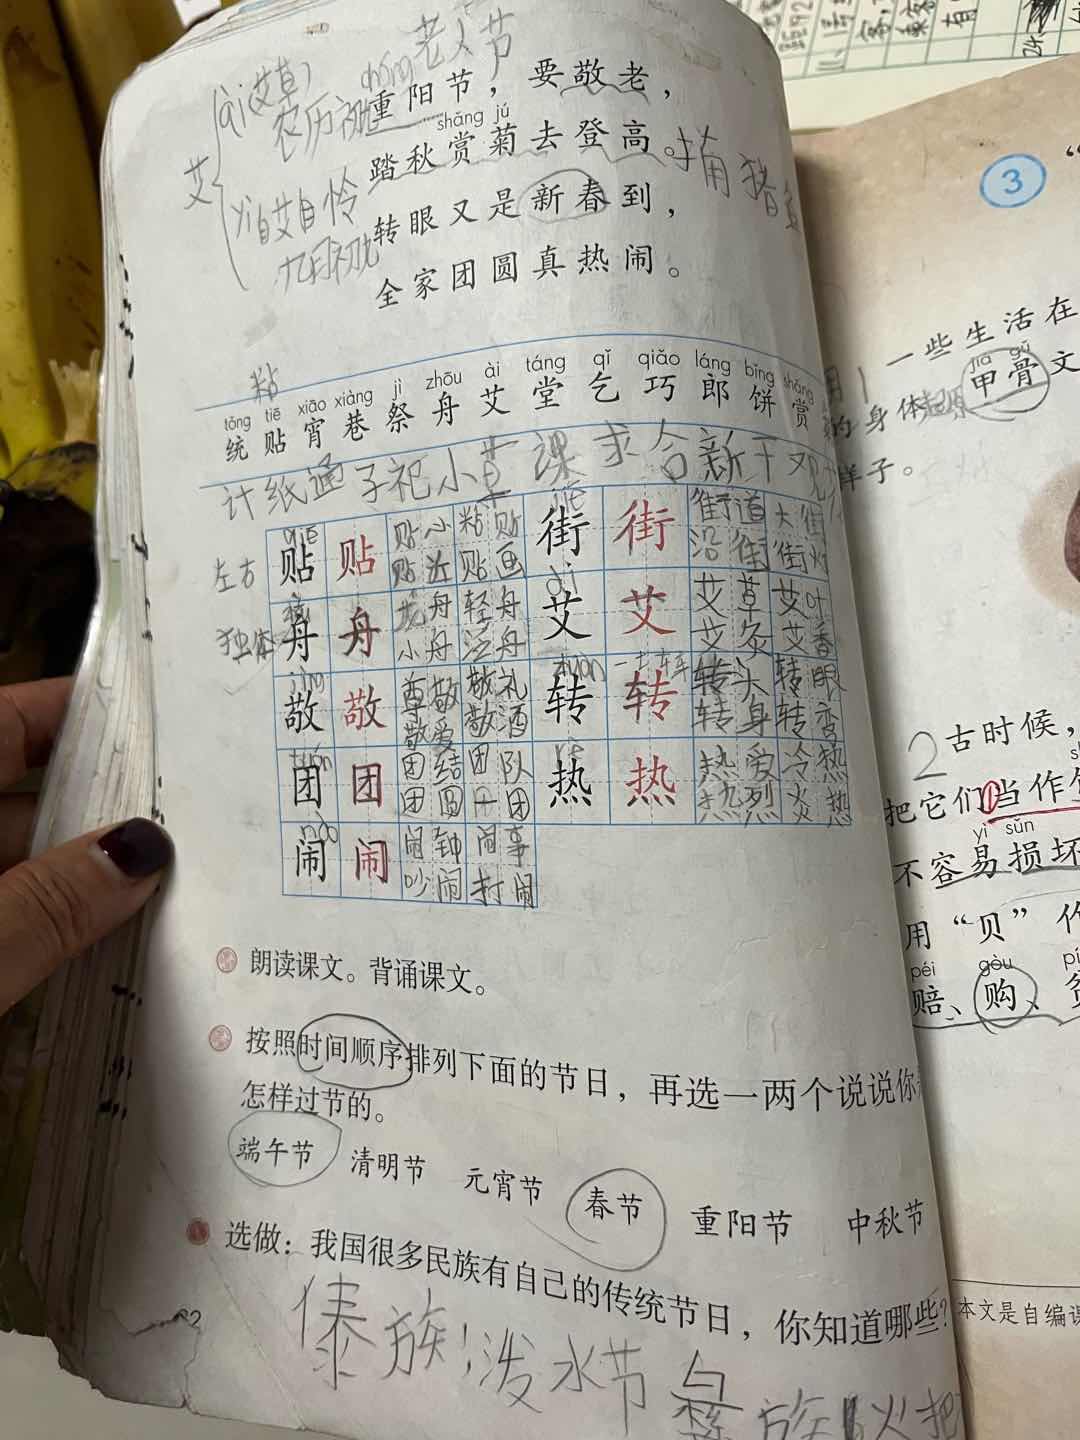 老人节
chóng
重阳节，要敬老，
shǎng jú
踏秋赏菊去登高。
转眼又是新春到，
全家团圆真热闹。
ài艾草
艾
yì自艾自怜
农历
九月初九
粘
tǒng tiē xiāo xiàng jì zhōu ài táng qǐ qiǎo láng bǐng shǎng
统 贴 宵 巷 祭 舟 艾 堂 乞 巧 郎 饼 赏
计 纸 通 子 祀 小 草 课 求 合 新 干 观
左右
贴 贴 贴心 粘贴 街 街 街道 大街
贴近 贴画 沿街 街灯
独体
舟 舟 龙舟 轻舟 艾 艾 艾草 艾叶
小舟 泛舟 艾灸 艾香
敬 敬 尊敬 敬礼 zhuǎn 转 转 转头 转眼
敬爱 敬酒 转身 转变
团 团 团结 团队 rè 热 热 热爱 冷热
团圆 热烈 火热
nào
闹 闹 闹钟 闹事
吵闹 打闹
朗读课文。背诵课文。
按照时间顺序排列下面的节日，再选一两个说说你
怎样过节的。
端午节 清明节 元宵节 春节 重阳节 中秋节
选做：我国很多民族有自己的传统节日，你知道哪些？
傣族：泼水节 彝族 火把
3
一些生活在
jiǎ gǔ
甲骨文
的身体
样子。
2 古时候，
把它们当作
yì sǔn
不容易损坏
用“贝”作
péi gòu
赔、购、
本文是自编课